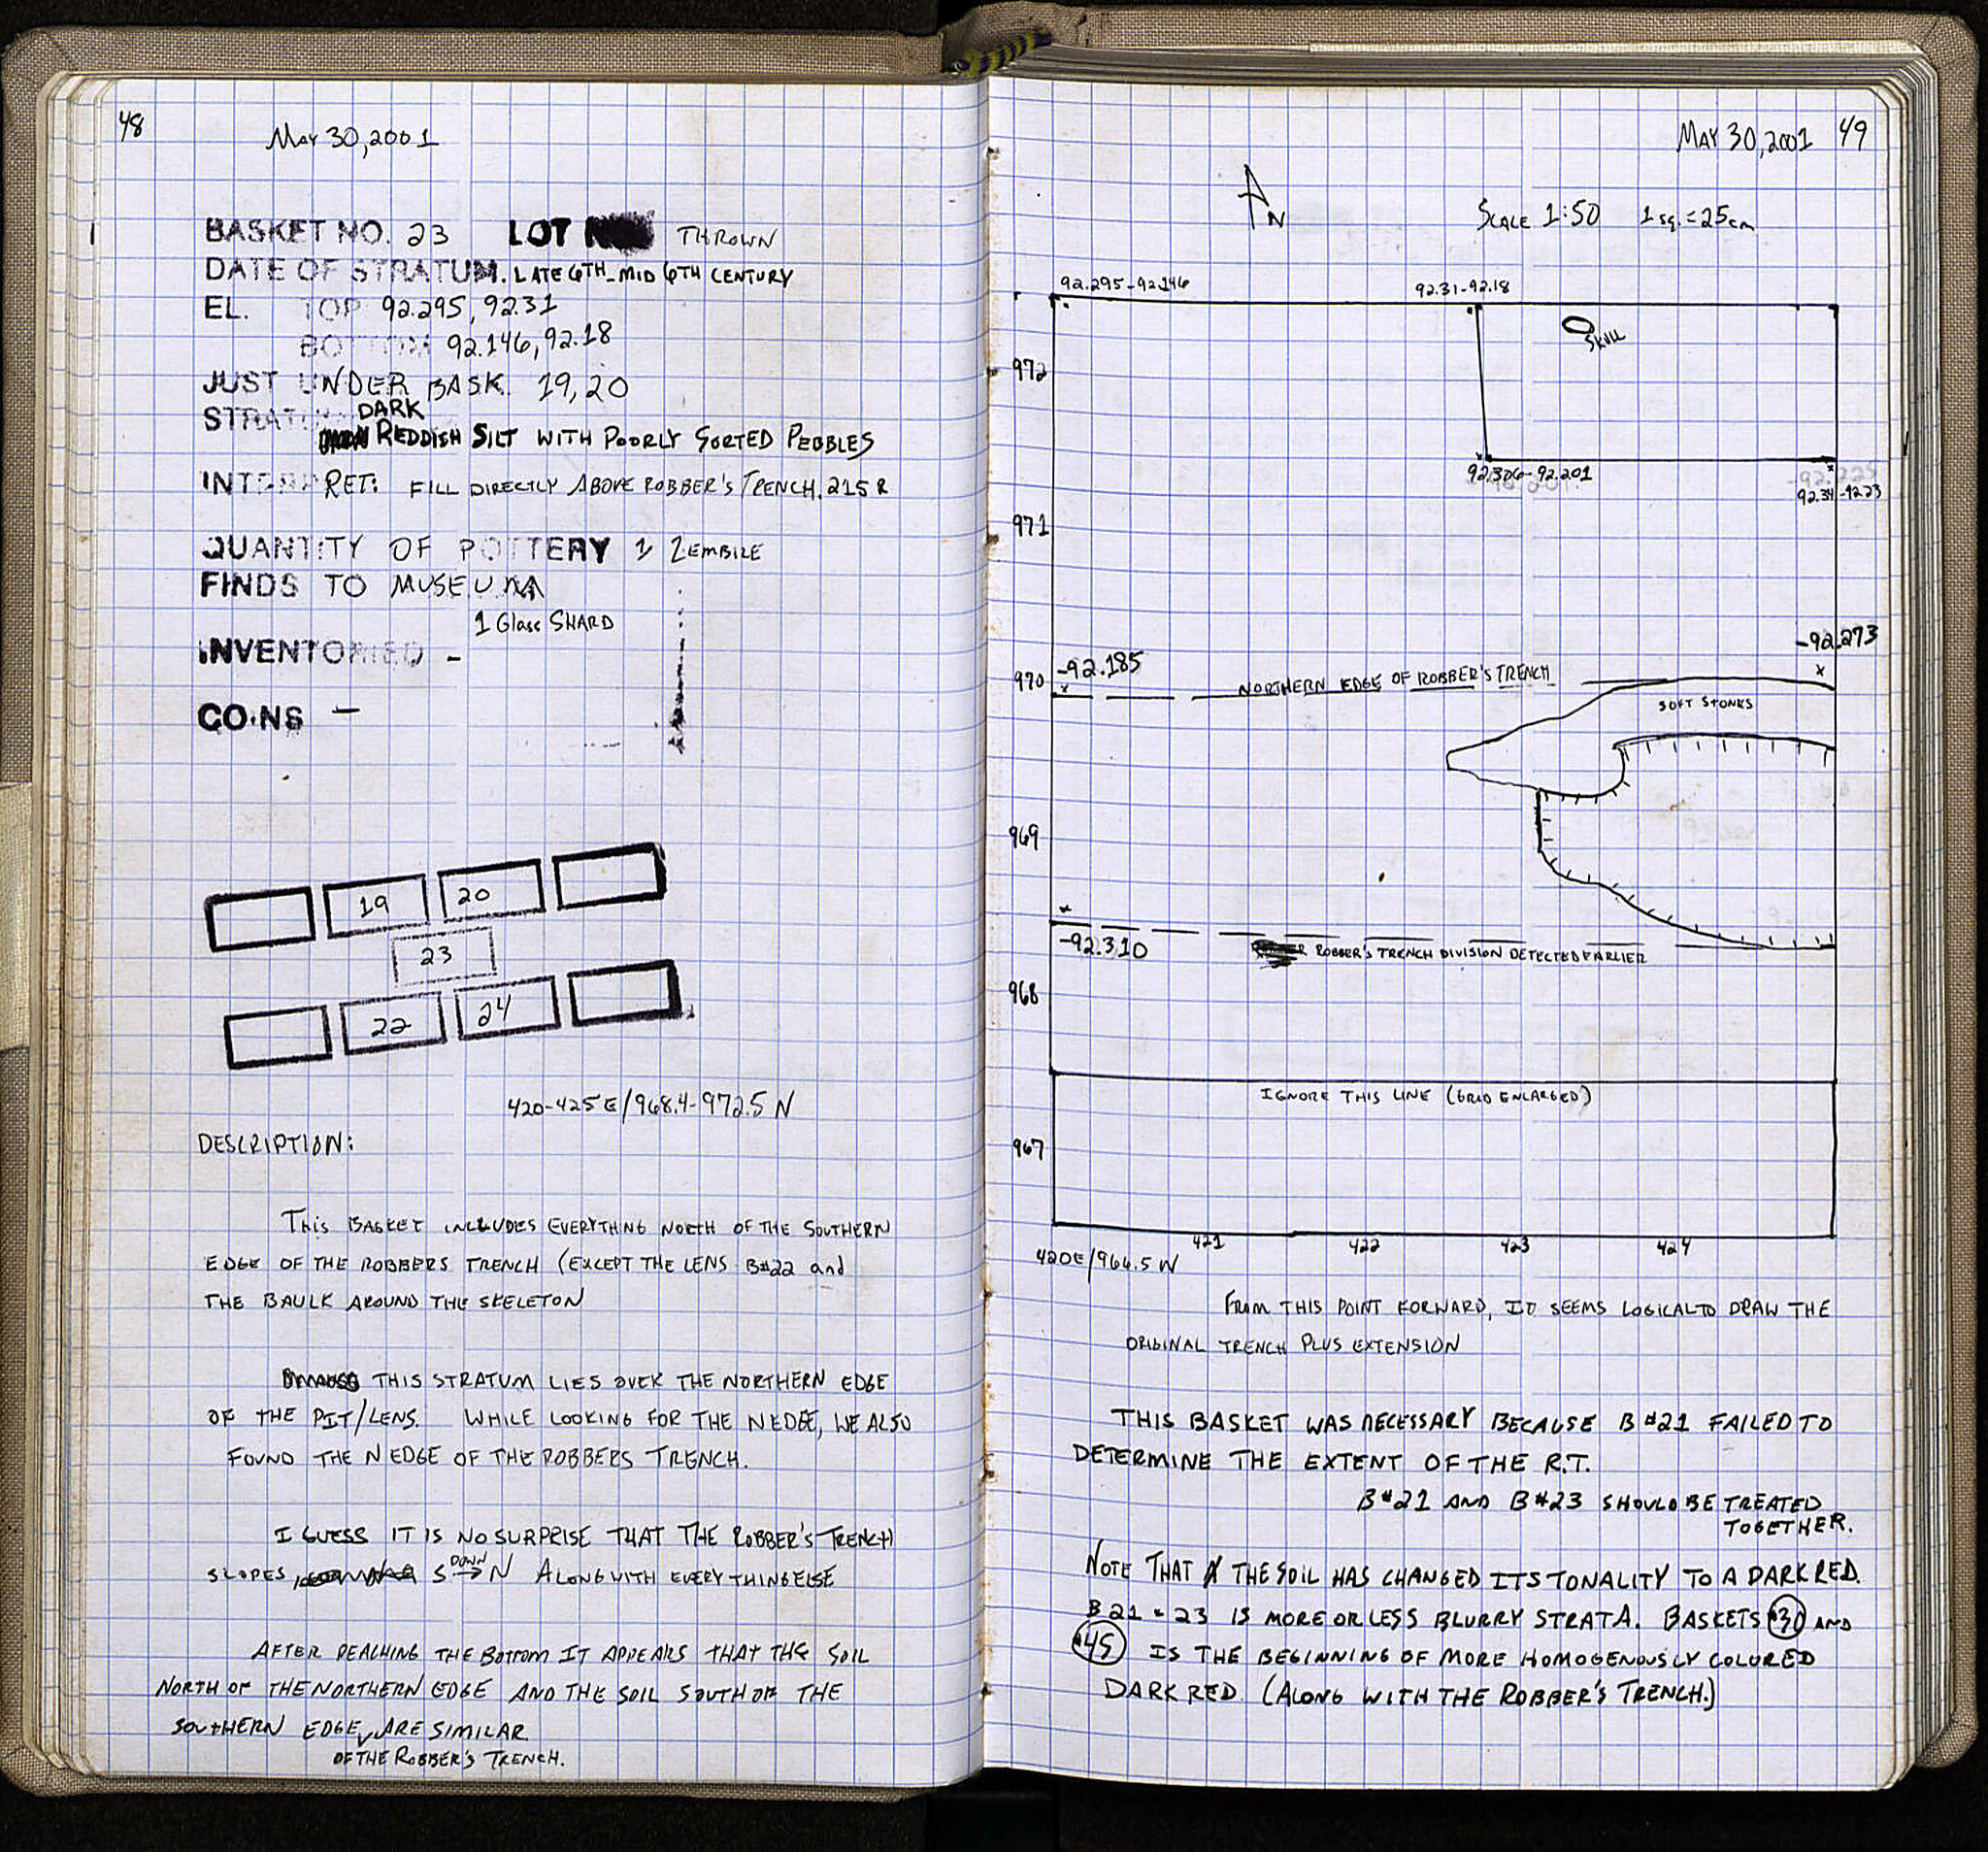 48
May 30, 2001
BASKET NO. 23 LOT THROWN
DATE OF STRATUM. LATE 6TH - MID 6TH CENTURY
EL. TOP 92.295, 92.31
BOTTOM 92.146, 92.18
JUST UNDER BASK. 19, 20
DARK
STRATUM REDDISH SILT WITH POORLY SORTED PEBBLES
INTERPRET: FILL DIRECTLY ABOVE ROBBER'S TRENCH. 215 R
QUANTITY OF POTTERY 1 ZEMBILE
FINDS TO MUSEUM
1 Glass SHARD
INVENTORIED -
COINS -
19 20
23
22 24
420-425 E/968.4-972.5 N
DESCRIPTION:
THIS BASKET INCLUDES EVERYTHING NORTH OF THE SOUTHERN
EDGE OF THE ROBBERS TRENCH (EXCEPT THE LENS B#22 and
THE BAULK AROUND THE SKELETON
THIS STRATUM LIES OVER THE NORTHERN EDGE
OF THE PIT/LENS. WHILE LOOKING FOR THE N EDGE, WE ALSO
FOUND THE N EDGE OF THE ROBBERS TRENCH.
I GUESS IT IS NO SURPRISE THAT THE ROBBER'S TRENCH
SLOPES S DOWN → N ALONG WITH EVERYTHING ELSE
AFTER REACHING THE BOTTOM IT APPEARS THAT THE SOIL
NORTH OF THE NORTHERN EDGE AND THE SOIL SOUTH OF THE
SOUTHERN EDGE ARE SIMILAR.
OF THE ROBBER'S TRENCH.
MAY 30, 2001 49
N
SCALE 1:50 1 sq. = 25cm
92.295-92.146
92.31-92.18
SKULL
972
92.306-92.201
92.34-92.23
971
-92.273
-92.185
970
NORTHERN EDGE OF ROBBER'S TRENCH
SOFT STONES
969
-92.310
ROBBER'S TRENCH DIVISION DETECTED EARLIER
968
IGNORE THIS LINE (GRID ENLARGED)
967
421 422 423 424
420E/966.5 N
FROM THIS POINT FORWARD, IT SEEMS LOGICAL TO DRAW THE
ORIGINAL TRENCH PLUS EXTENSION
THIS BASKET WAS NECESSARY BECAUSE B#21 FAILED TO
DETERMINE THE EXTENT OF THE R.T.
B#21 AND B#23 SHOULD BE TREATED
TOGETHER.
NOTE THAT THE SOIL HAS CHANGED ITS TONALITY TO A DARK RED.
B 21 & 23 IS MORE OR LESS BLURRY STRATA. BASKETS #30 AND
#45 IS THE BEGINNING OF MORE HOMOGENOUSLY COLORED
DARK RED. (ALONG WITH THE ROBBER'S TRENCH.)